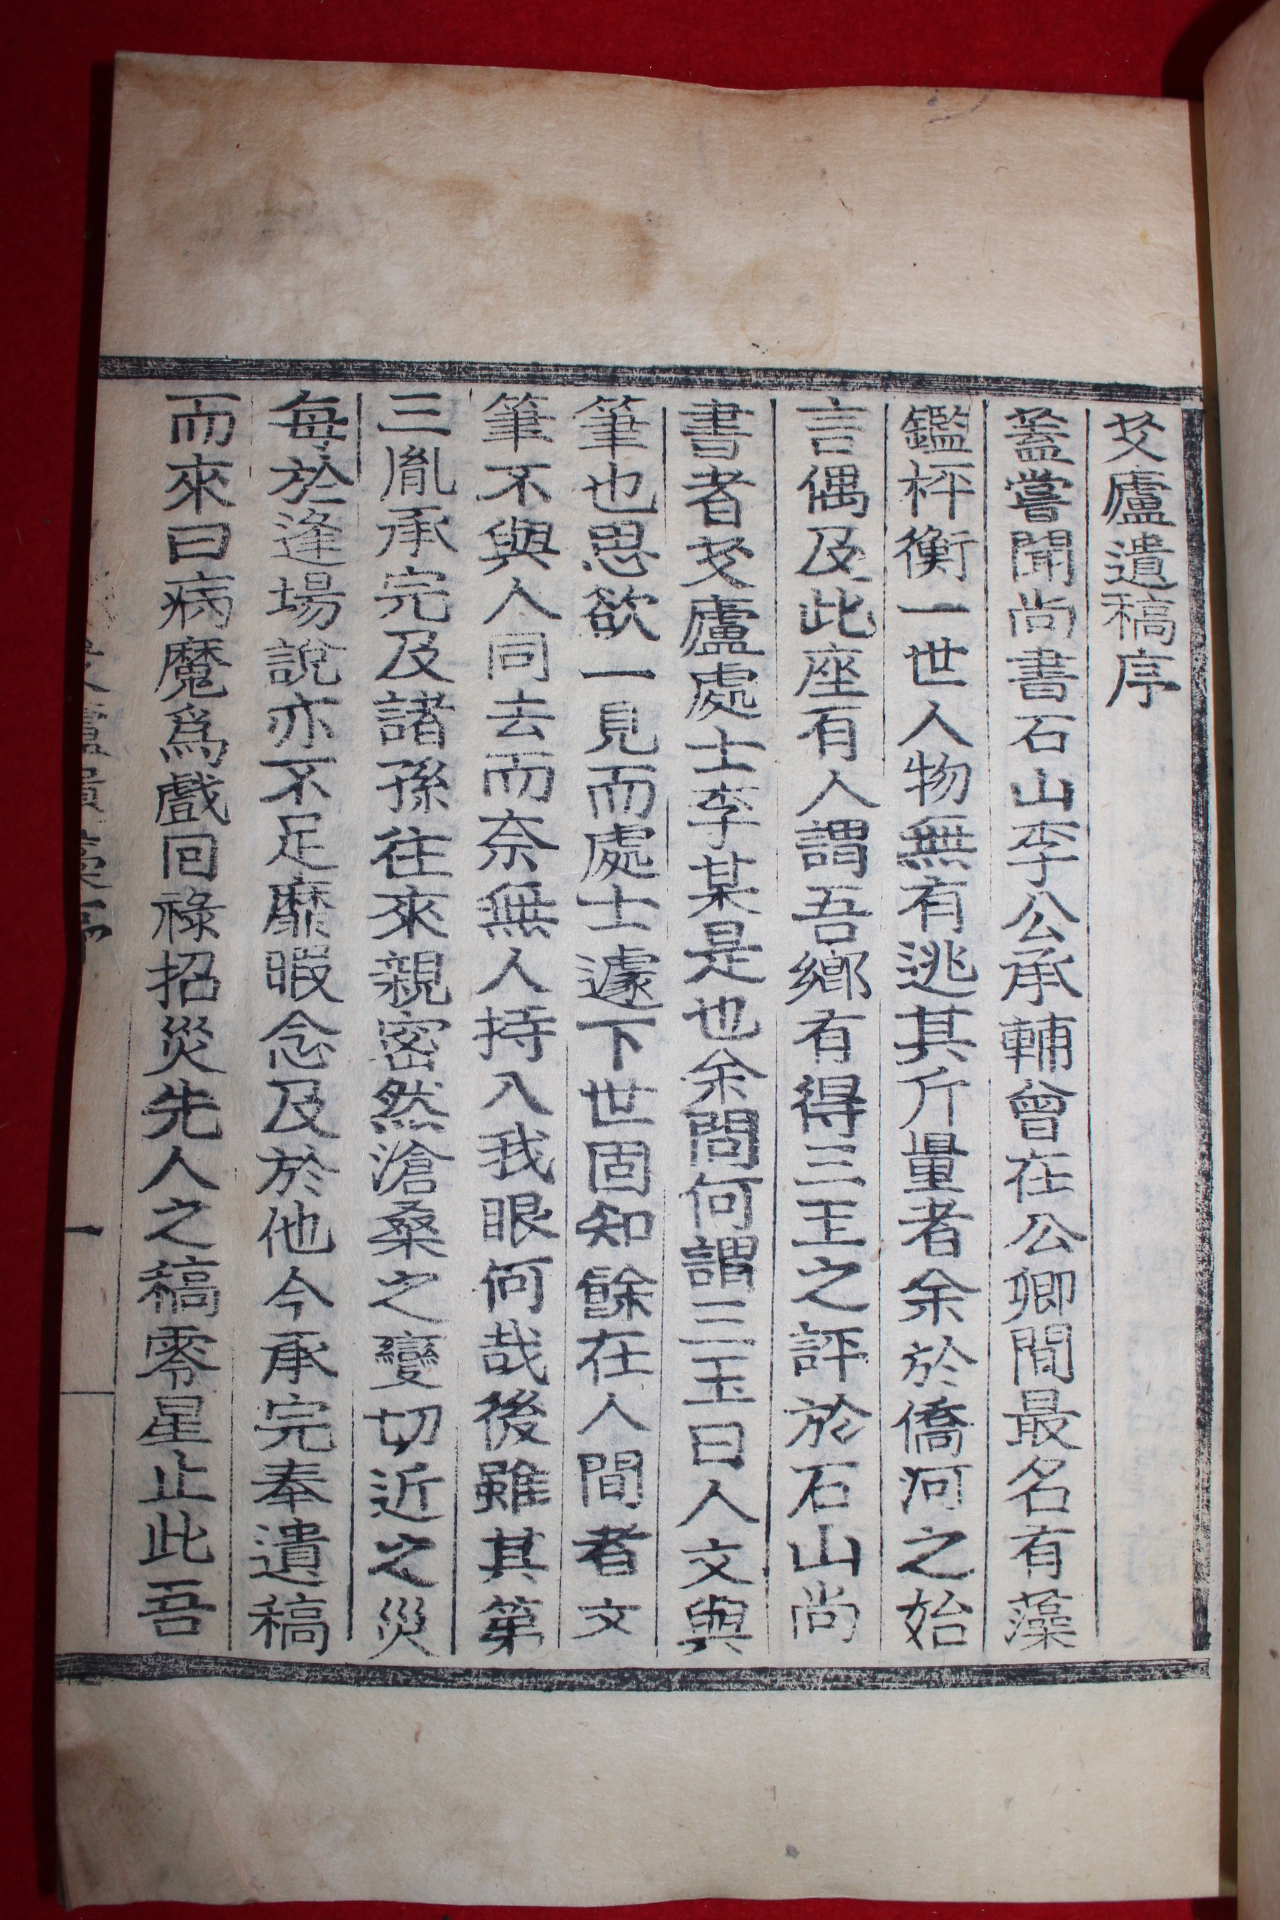 艾廬遺稿序
蓋嘗聞尚書石山李公承輔曾在公卿間最名有藻
鑑枰衡一世人物無有逃其斤量者余於僑河之始
言偶及此座有人謂吾鄕有得三王之評於石山尚
書者艾廬處士李某是也余問何謂三玉曰人文與
筆也思欲一見而處士遽下世固知餘在人間者文
筆不與人同去而奈無人持入我眼何哉後雖其第
三胤承完及諸孫往來親密然滄桑之變切近之災
每於逢場說亦不足靡暇念及於他今承完奉遺稿
而來曰病魔爲戲回祿招災先人之稿零星止此吾
一